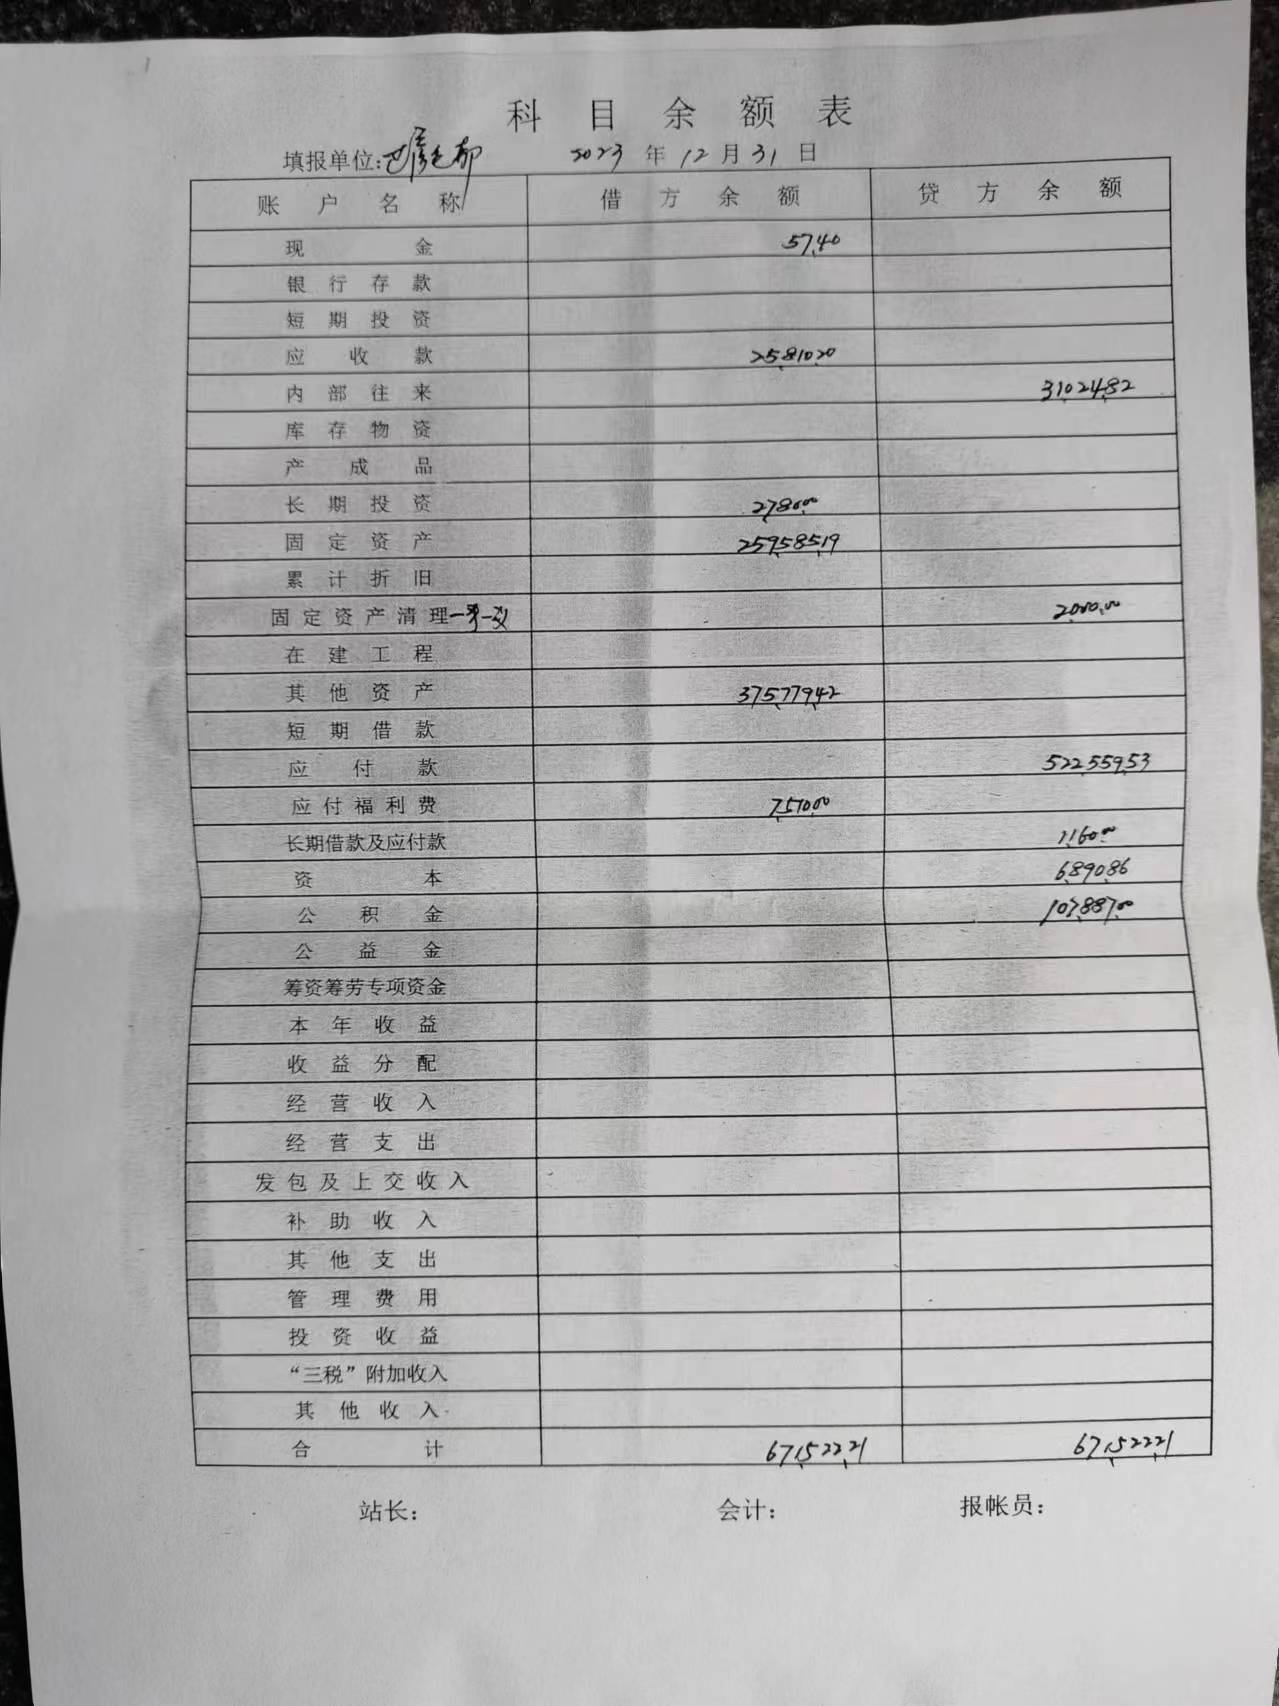 科目余额表
填报单位: 2023年12月31日
账户名称 借方余额 贷方余额
现金 57.40
银行存款
短期投资
应收款 25810.20
内部往来 31024.82
库存物资
产成品
长期投资 2780.00
固定资产 259585.19
累计折旧
固定资产清理一事一议 2000.00
在建工程
其他资产 375779.42
短期借款
应付款 522559.53
应付福利费 7510.00
长期借款及应付款 1160.00
资本 6890.86
公积金 107887.00
公益金
筹资筹劳专项资金
本年收益
收益分配
经营收入
经营支出
发包及上交收入
补助收入
其他支出
管理费用
投资收益
“三税”附加收入
其他收入
合计 671522.21 671522.21
站长: 会计: 报帐员: